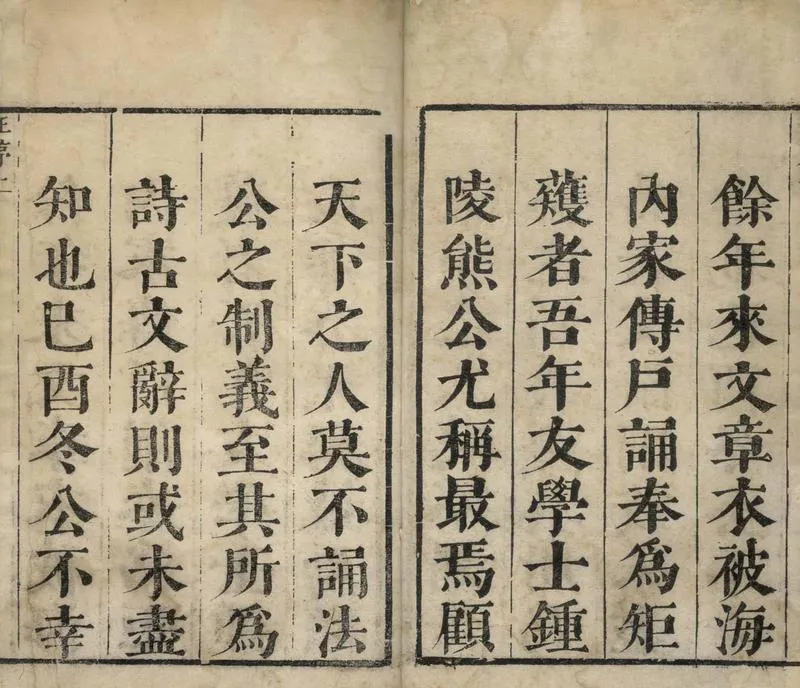 餘年來文章衣被海
內家傳戶誦奉為矩
蒦者吾年友學士鍾
陵熊公尤稱最焉顧
天下之人莫不誦法
公之制義至其所為
詩古文辭則或未盡
知也已酉冬公不幸